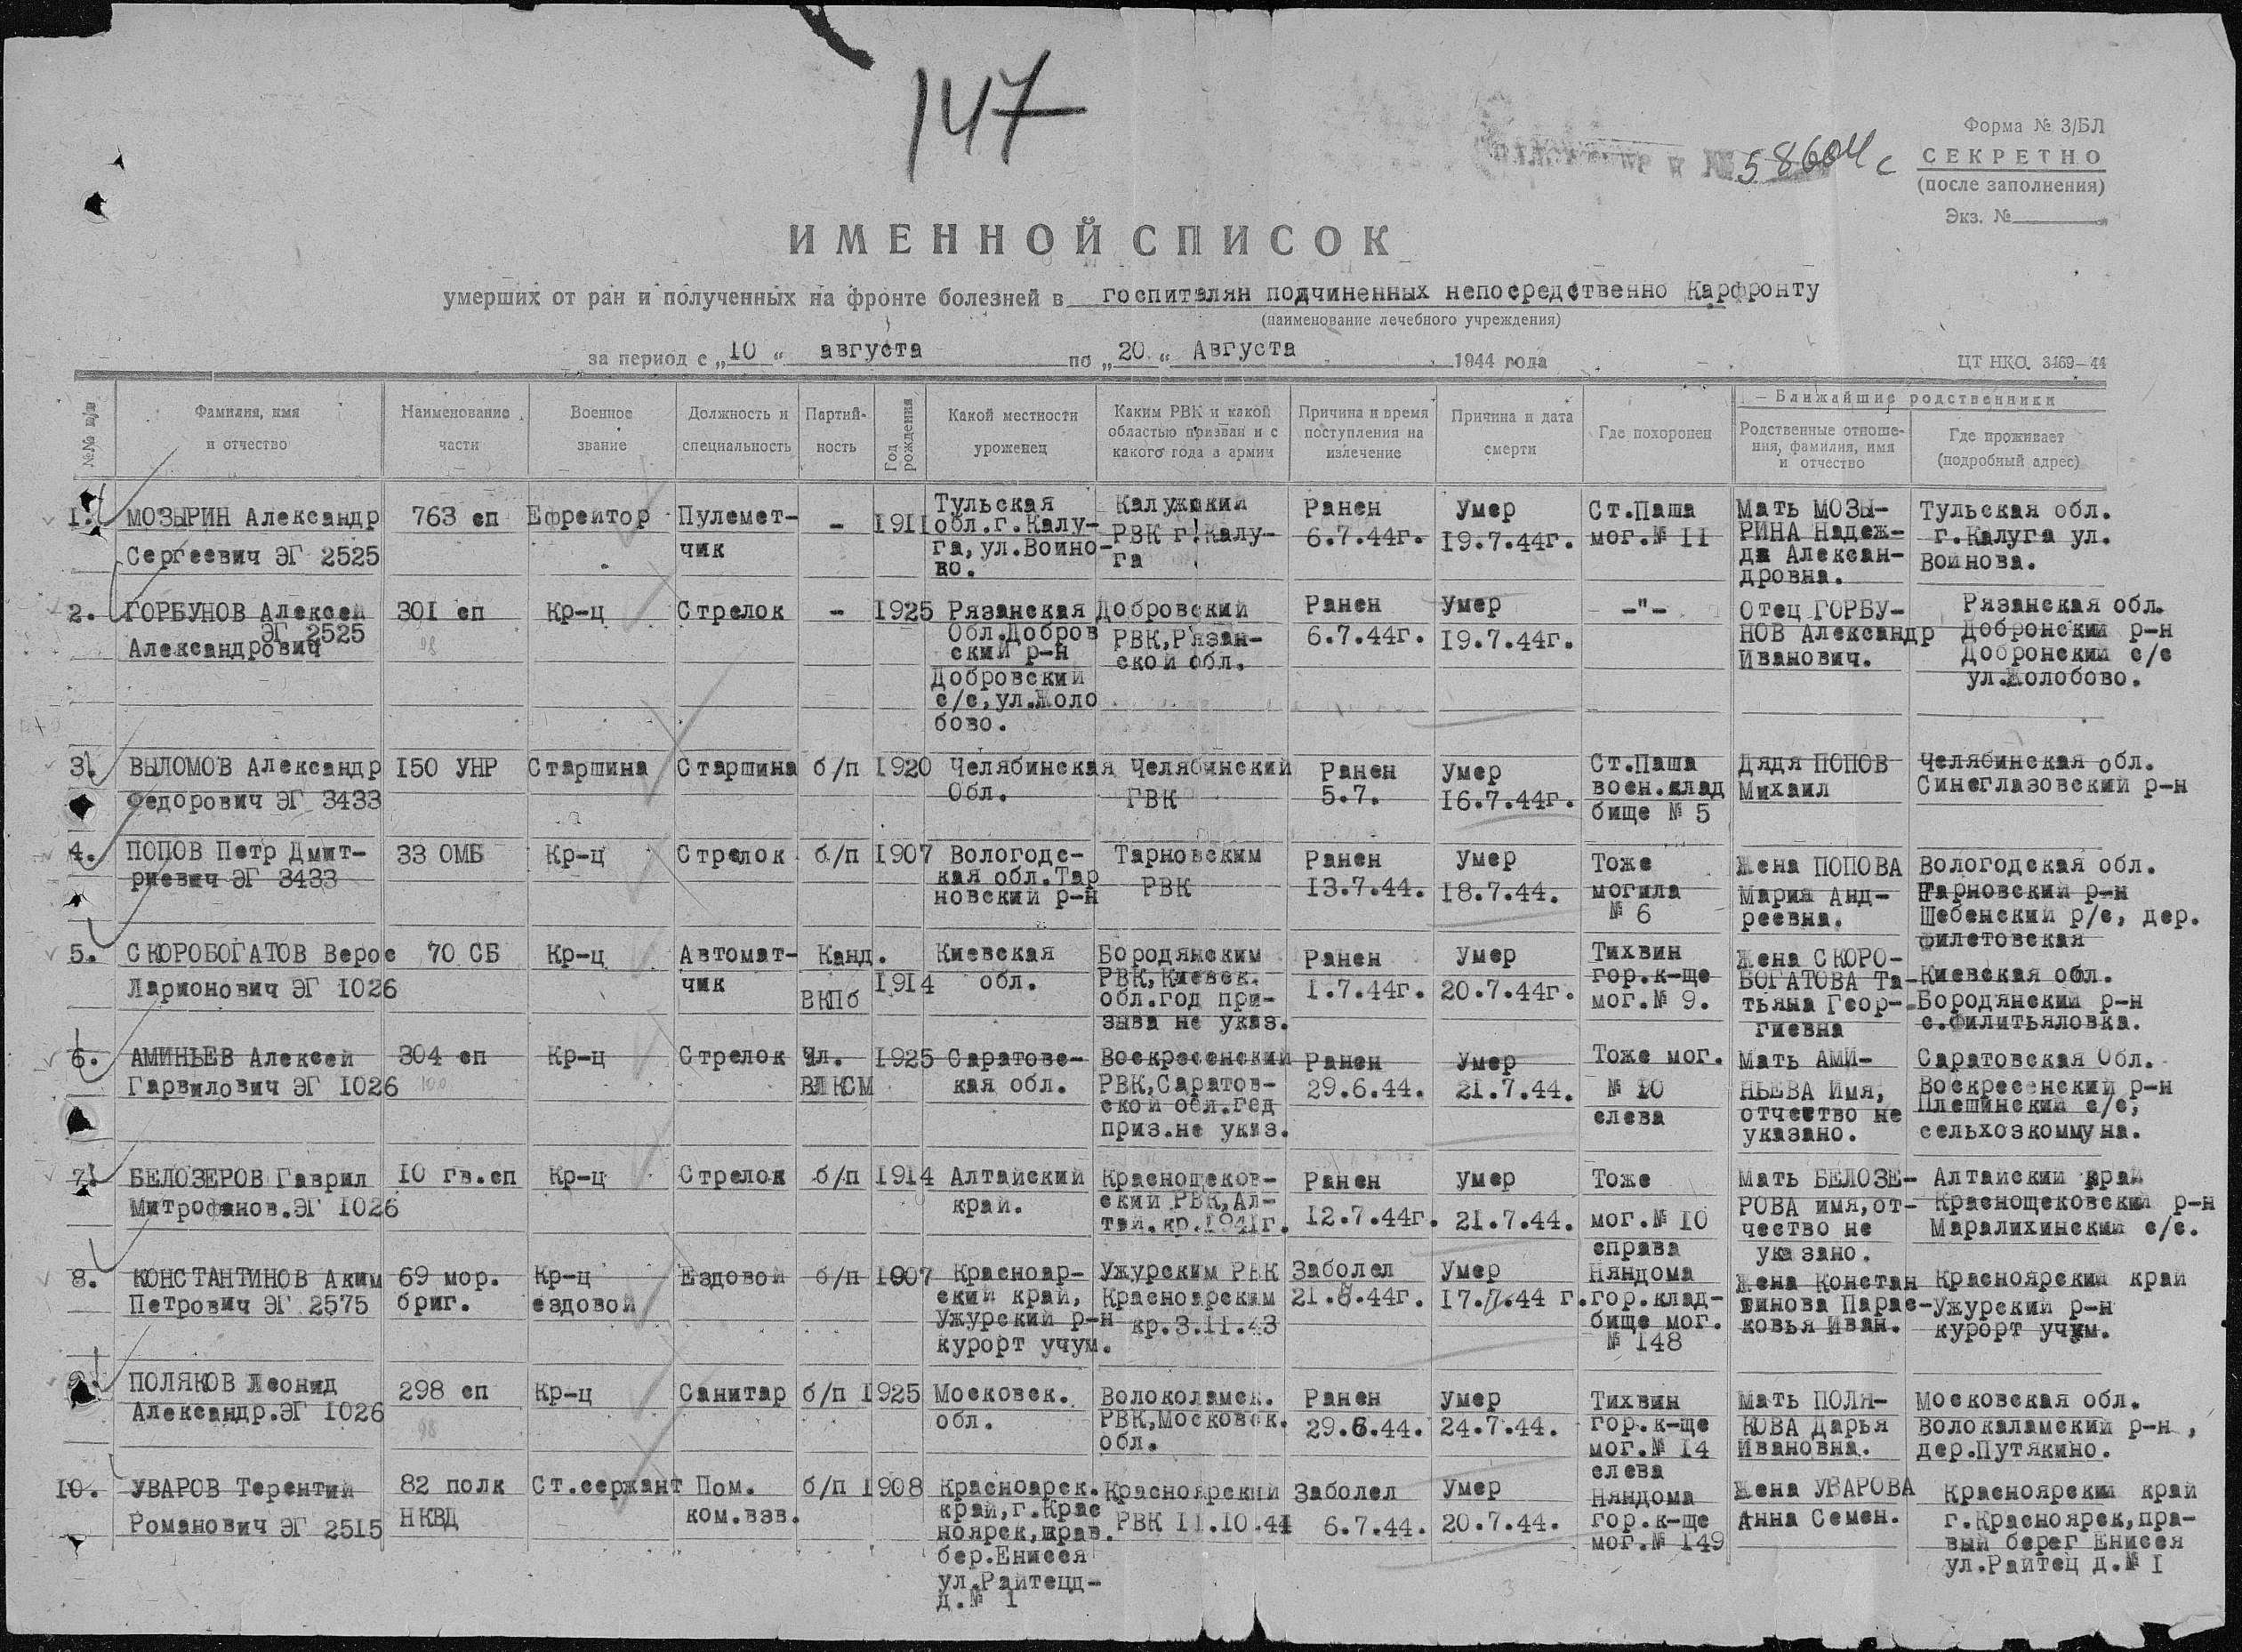 147
Форма № 3/БЛ
58604с
СЕКРЕТНО
(после заполнения)
Экз. №
ИМЕННОЙ СПИСОК
умерших от ран и полученных на фронте болезней в госпиталян подчиненных непосредственно Карфронту
(наименование лечебного учреждения)
за период с „10“ августа по „20.“ Августа 1944 года
ЦТ НКО. 3469—44
№№ п/п
Фамилия, имя
и отчество
Наименование
части
Военное
звание
Должность и
специальность
Партий-
ность
Год
рождения
Какой местности
уроженец
Каким РВК и какой
областью призван и с
какого года в армии
Причина и время
поступления на
излечение
Причина и дата
смерти
Где похоронен
Ближайшие родственники
Родственные отноше-
ния, фамилия, имя
и отчество
Где проживает
(подробный адрес)
1.
МОЗЫРИН Александр
Сергеевич ЭГ 2525
763 сп
Ефрейтор
Пулемет-
чик
-
1911
Тульская
обл.г.Калу-
га,ул.Воино-
во.
Калужский
РВК г!Калу-
га
Ранен
6.7.44г.
Умер
19.7.44г.
Ст.Паша
мог.№ 11
Мать МОЗЫ-
РИНА Надеж-
да Алексан-
дровна.
Тульская обл.
г.Калуга ул.
Воинова.
2.
ГОРБУНОВ Алексей
ЭГ 2525
Александрович
301 сп
98
Кр-ц
Стрелок
-
1925
Рязанская
Обл.Добров
ский р-н
Добровский
с/с,ул.Жоло
бово.
Добровский
РВК,Рязан-
ской обл.
Ранен
6.7.44г.
Умер
19.7.44г.
-"-
Отец ГОРБУ-
НОВ Александр
Иванович.
Рязанская обл.
Добронский р-н
Добронский с/с
ул.Жолобово.
3.
ВЫЛОМОВ Александр
Федорович ЭГ 3433
150 УНР
Старшина
Старшина
б/п
1920
Челябинская
Обл.
Челябинский
ГВК
Ранен
5.7.
Умер
16.7.44г.
Ст.Паша
воен.клад
бище № 5
Дядя ПОПОВ
Михаил
Челябинская обл.
Синеглазовский р-н
4.
ПОПОВ Петр Дмит-
риевич ЭГ 3433
33 ОМБ
Кр-ц
Стрелок
б/п
1907
Вологодс-
кая обл.Тар
новский р-н
Тарновским
РВК
Ранен
13.7.44.
Умер
18.7.44.
Тоже
могила
№ 6
Жена ПОПОВА
Мария Анд-
реевна.
Вологодская обл.
Тарновский р-н
Шебенский р/с, дер.
филетовская
5.
СКОРОБОГАТОВ Верос
Ларионович ЭГ 1026
70 СБ
Кр-ц
Автомат-
чик
Канд.
ВКПб
1914
Киевская
обл.
Бородянским
РВК,Киевск.
обл.год при-
зыва не указ.
Ранен
1.7.44г.
Умер
20.7.44г.
Тихвин
гор.к-ще
мог.№ 9.
Жена СКОРО-
БОГАТОВА Та-
тьяна Геор-
гиевна
Киевская обл.
Бородянский р-н
с.Филитьяловка.
6.
АМИНЬЕВ Алексей
Гарвилович ЭГ 1026
304 сп
100
Кр-ц
Стрелок
Чл.
ВЛКСМ
1925
Саратовс-
кая обл.
Воскресенский
РВК,Саратов-
ской обл.год
приз.не укиз.
Ранен
29.6.44.
Умер
21.7.44.
Тоже мог.
№ 10
слева
Мать АМИ-
НЬЕВА Имя,
отчество не
указано.
Саратовская Обл.
Воскресенский р-н
Плешинский с/с,
сельхозкоммуна.
7.
БЕЛОЗЕРОВ Гаврил
Митрофанов.ЭГ 1026
10 гв.сп
Кр-ц
Стрелок
б/п
1914
Алтайский
край.
Краснощеков-
ский РВК,Ал-
тай.кр.1941г.
Ранен
12.7.44г.
Умер
21.7.44.
Тоже
мог.№ 10
справа
Мать БЕЛОЗЕ-
РОВА имя,от-
чество не
указано.
Алтайский край
Краснощековский р-н
Маралихинский с/с.
8.
КОНСТАНТИНОВ Аким
Петрович ЭГ 2575
69 мор.
бриг.
Кр-ц
ездовой
Ездовой
б/п
1907
Красноар-
ский край,
Ужурский р-н
курорт учум.
Ужурским РВК
Красноярским
кр.3.11.43
Заболел
21.6.44г.
Умер
17.7.44 г.
Няндома
гор.клад-
бище мог.
№ 148
Жена Констан
тинова Парас-
ковья Иван.
Красноярский край
Ужурский р-н
курорт учум.
9.
ПОЛЯКОВ Леонид
Александр.ЭГ 1026
298 сп
98
Кр-ц
Санитар
б/п
1925
Московск.
обл.
Волоколамск.
РВК,Московск.
обл.
Ранен
29.6.44.
Умер
24.7.44.
Тихвин
гор.к-ще
мог.№ 14
слева
Мать ПОЛЯ-
КОВА Дарья
Ивановна.
Московская обл.
Волокаламский р-н,
дер.Путякино.
10.
УВАРОВ Терентий
Романович ЭГ 2515
82 полк
НКВД
Ст.сержант
Пом.
ком.взв.
б/п
1908
Красноарск.
край,г.Крас
ноярск,прав.
бер.Енисея
ул.Райтецд-
д.№ 1
Красноярский
РВК 11.10.41
Заболел
6.7.44.
Умер
20.7.44.
Няндома
гор.к-ще
мог.№ 149
Жена УВАРОВА
Анна Семен.
Красноярский край
г.Красноярск,пра-
вый берег Енисея
ул.Райтец д.№ 1
3